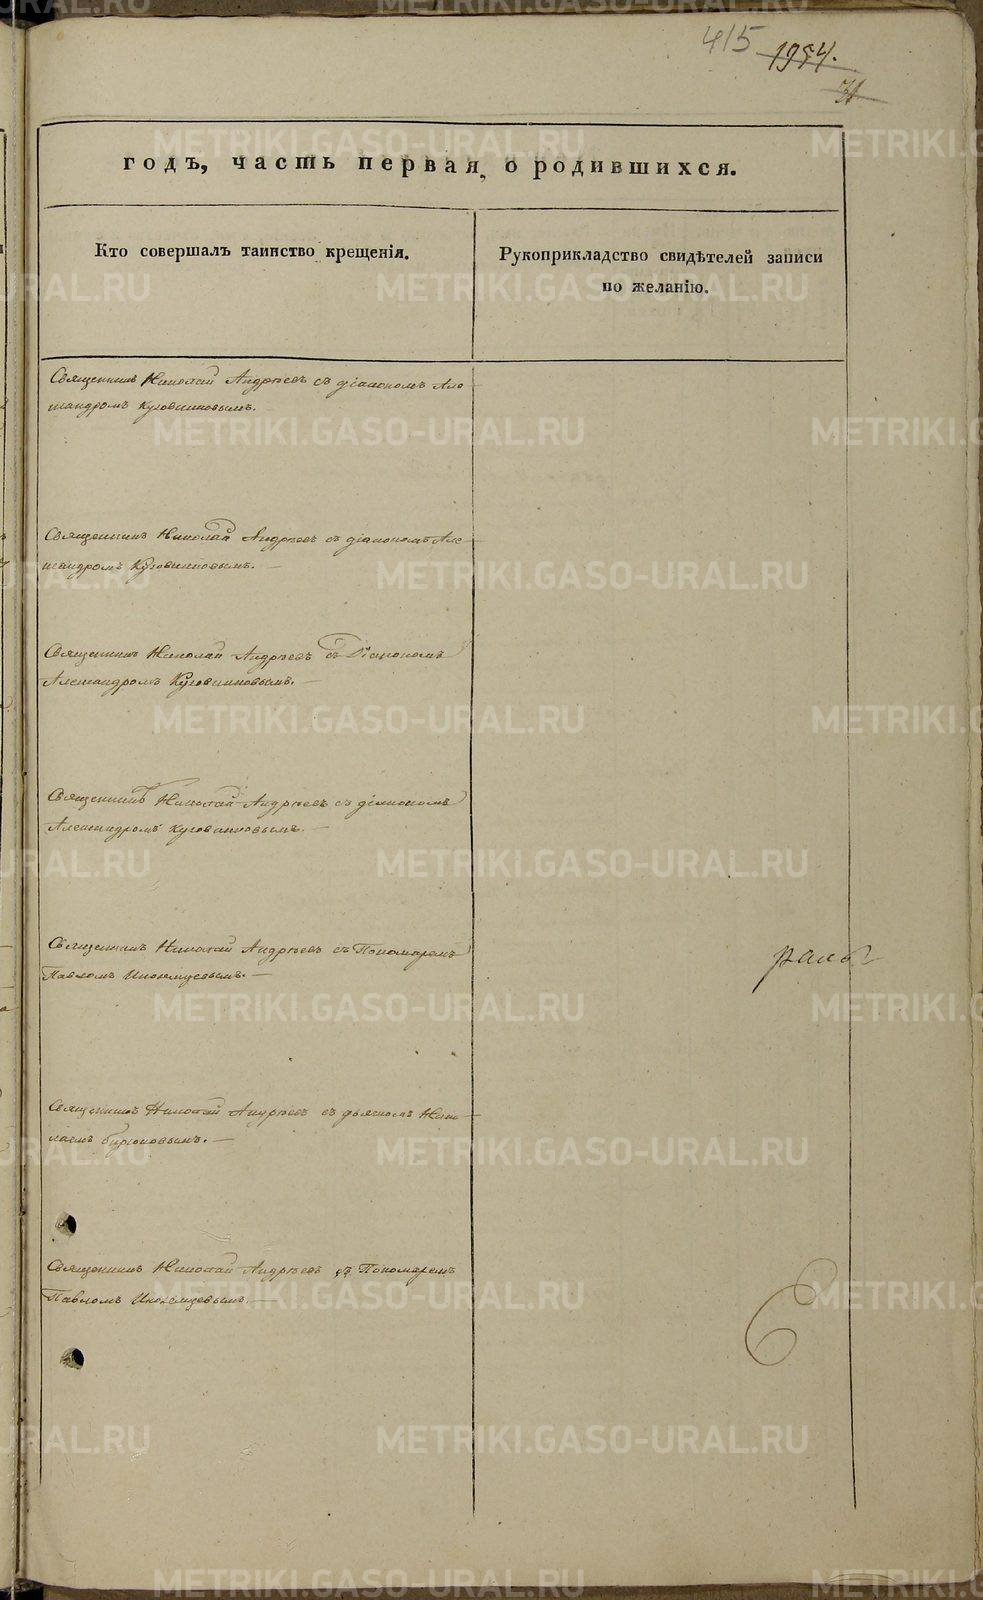 415 1954.
31
годъ, часть первая, о родившихся.
Кто совершалъ таинство крещенія.
Рукоприкладство свидѣтелей записи
по желанію.
Священникъ Николай Андрѣевъ съ діакономъ Але
ксандромъ Кузовниковымъ.
Священникъ Николай Андрѣевъ съ діакономъ Але
ксандромъ Кузовниковымъ. —
Священникъ Николай Андрѣевъ съ Діакономъ
Александромъ Кузовниковымъ. —
Священникъ Николай Андрѣевъ съ діакономъ
Александромъ Кузовниковымъ. —
Священникъ Николай Андрѣевъ съ Пономаремъ
Павломъ Иноземцевымъ. —
раль
Священникъ Николай Андрѣевъ съ дьячкомъ Нико
лаемъ Бирюковымъ. —
Священникъ Николай Андрѣевъ съ Пономаремъ
Павломъ Иноземцевымъ. —
METRIKI.GASO-URAL.RU